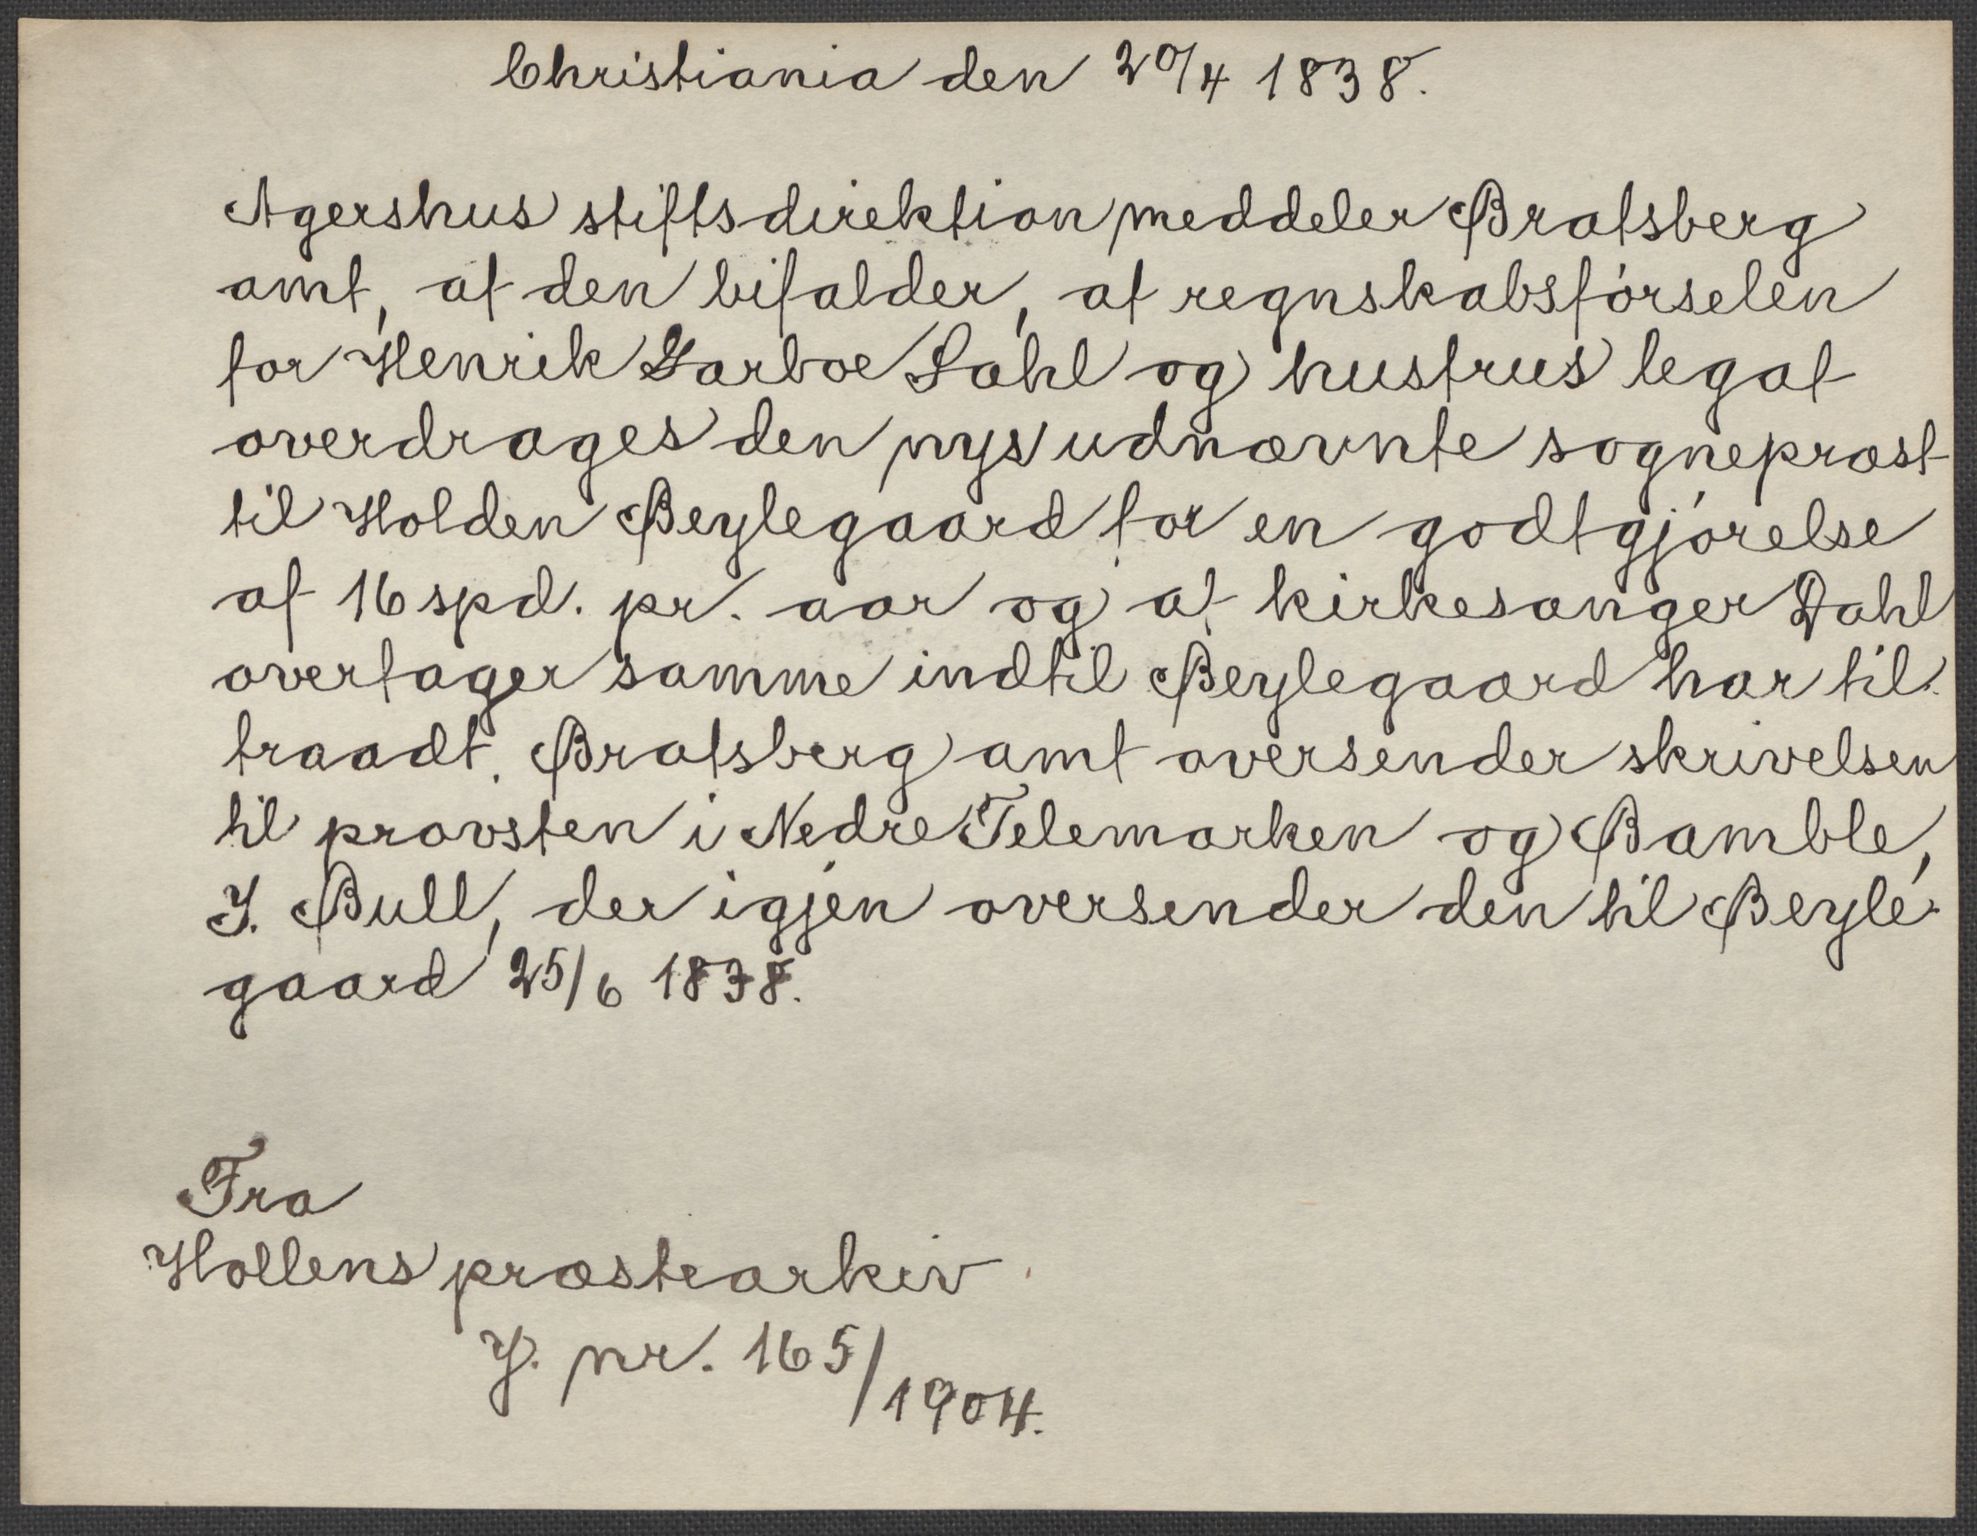 Christiania den 20/4 1838.
Agershus stiftsdirektion meddeler Bratsberg
amt, at den bifalder, at regnskabsførselen
for Henrik Garboe Dahl og hustrus legat
overdrages den nys udnævnte sognepræst
til Holden Beylegaard for en godtgjørelse
af 16 spd. pr. aar og at kirkesanger Dahl
overtager samme indtil Beylegaard har til-
traadt. Bratsberg amt oversender skrivelsen
til provsten i Nedre Telemarken og Bamble,
J. Bull, der igjen oversender den til Beyle-
gaard 25/6 1838.
Fra
Hollens præstearkiv
J. nr. 165/1904.